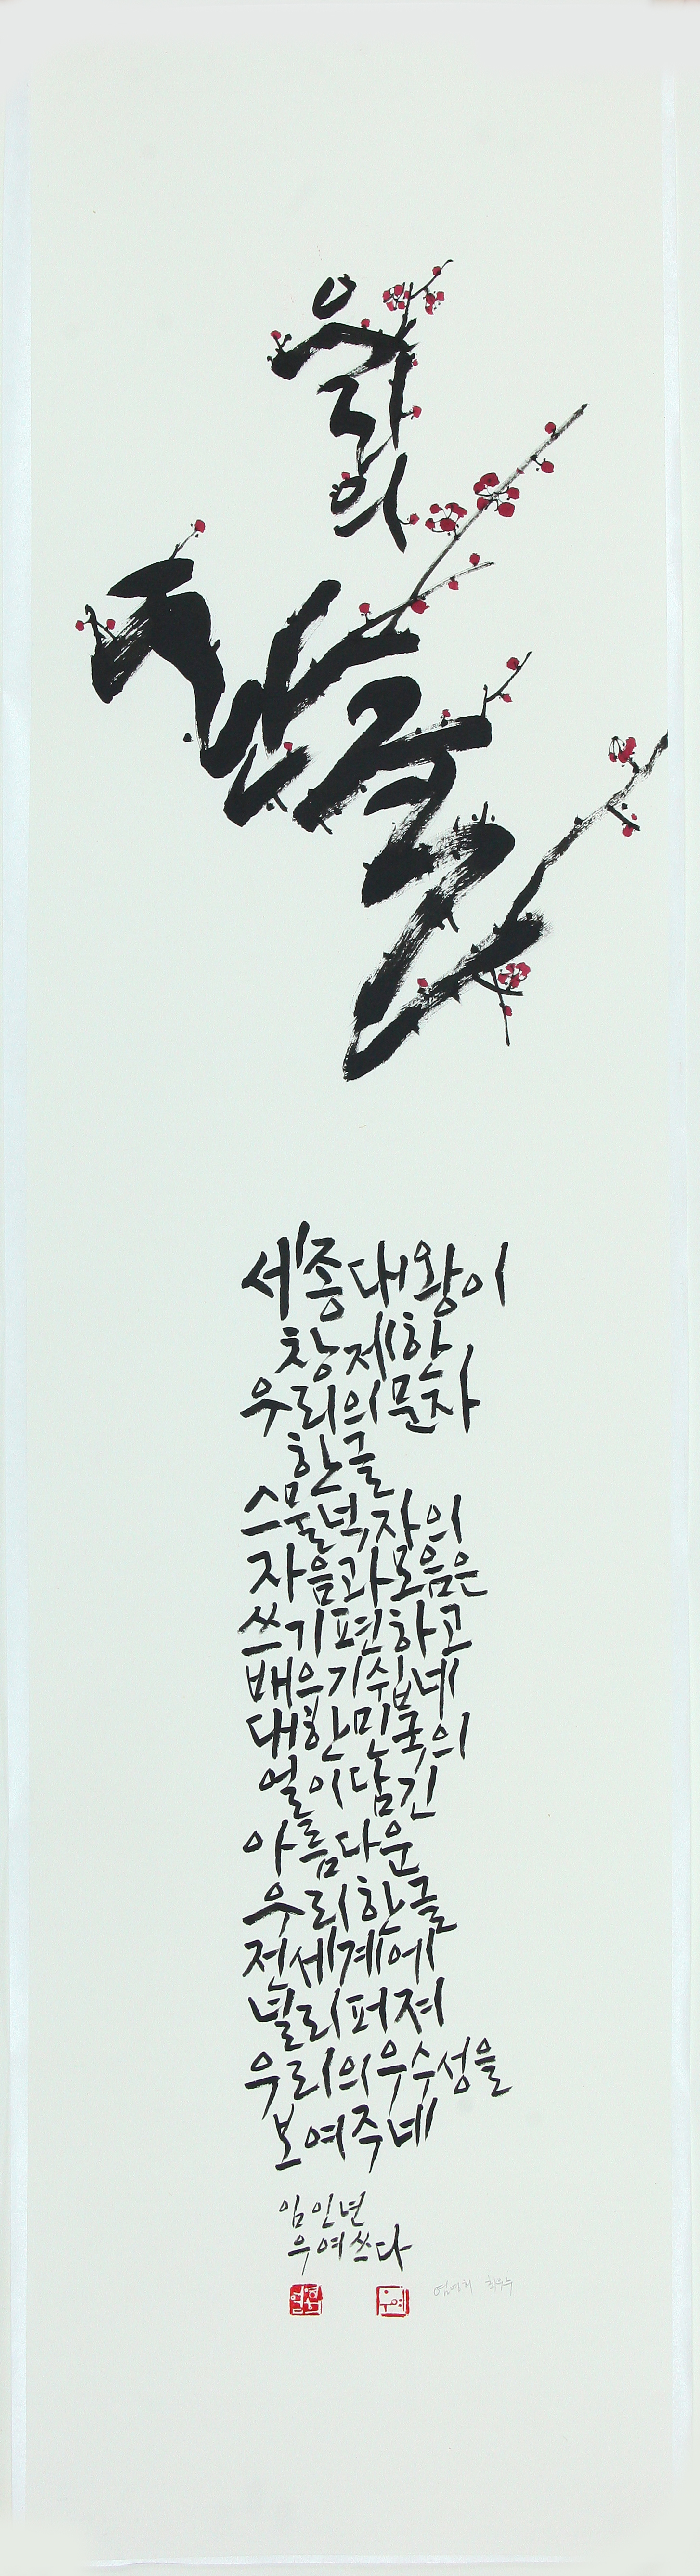 우리의
한글
세종대왕이
창제한
우리의 문자
한글
스물넉자의
자음과 모음은
쓰기 편하고
배우기 쉽네
대한민국의
얼이 담긴
아름다운
우리 한글
전세계에
널리 퍼져
우리의 우수성을
보여주네
임인년
우여 쓰다